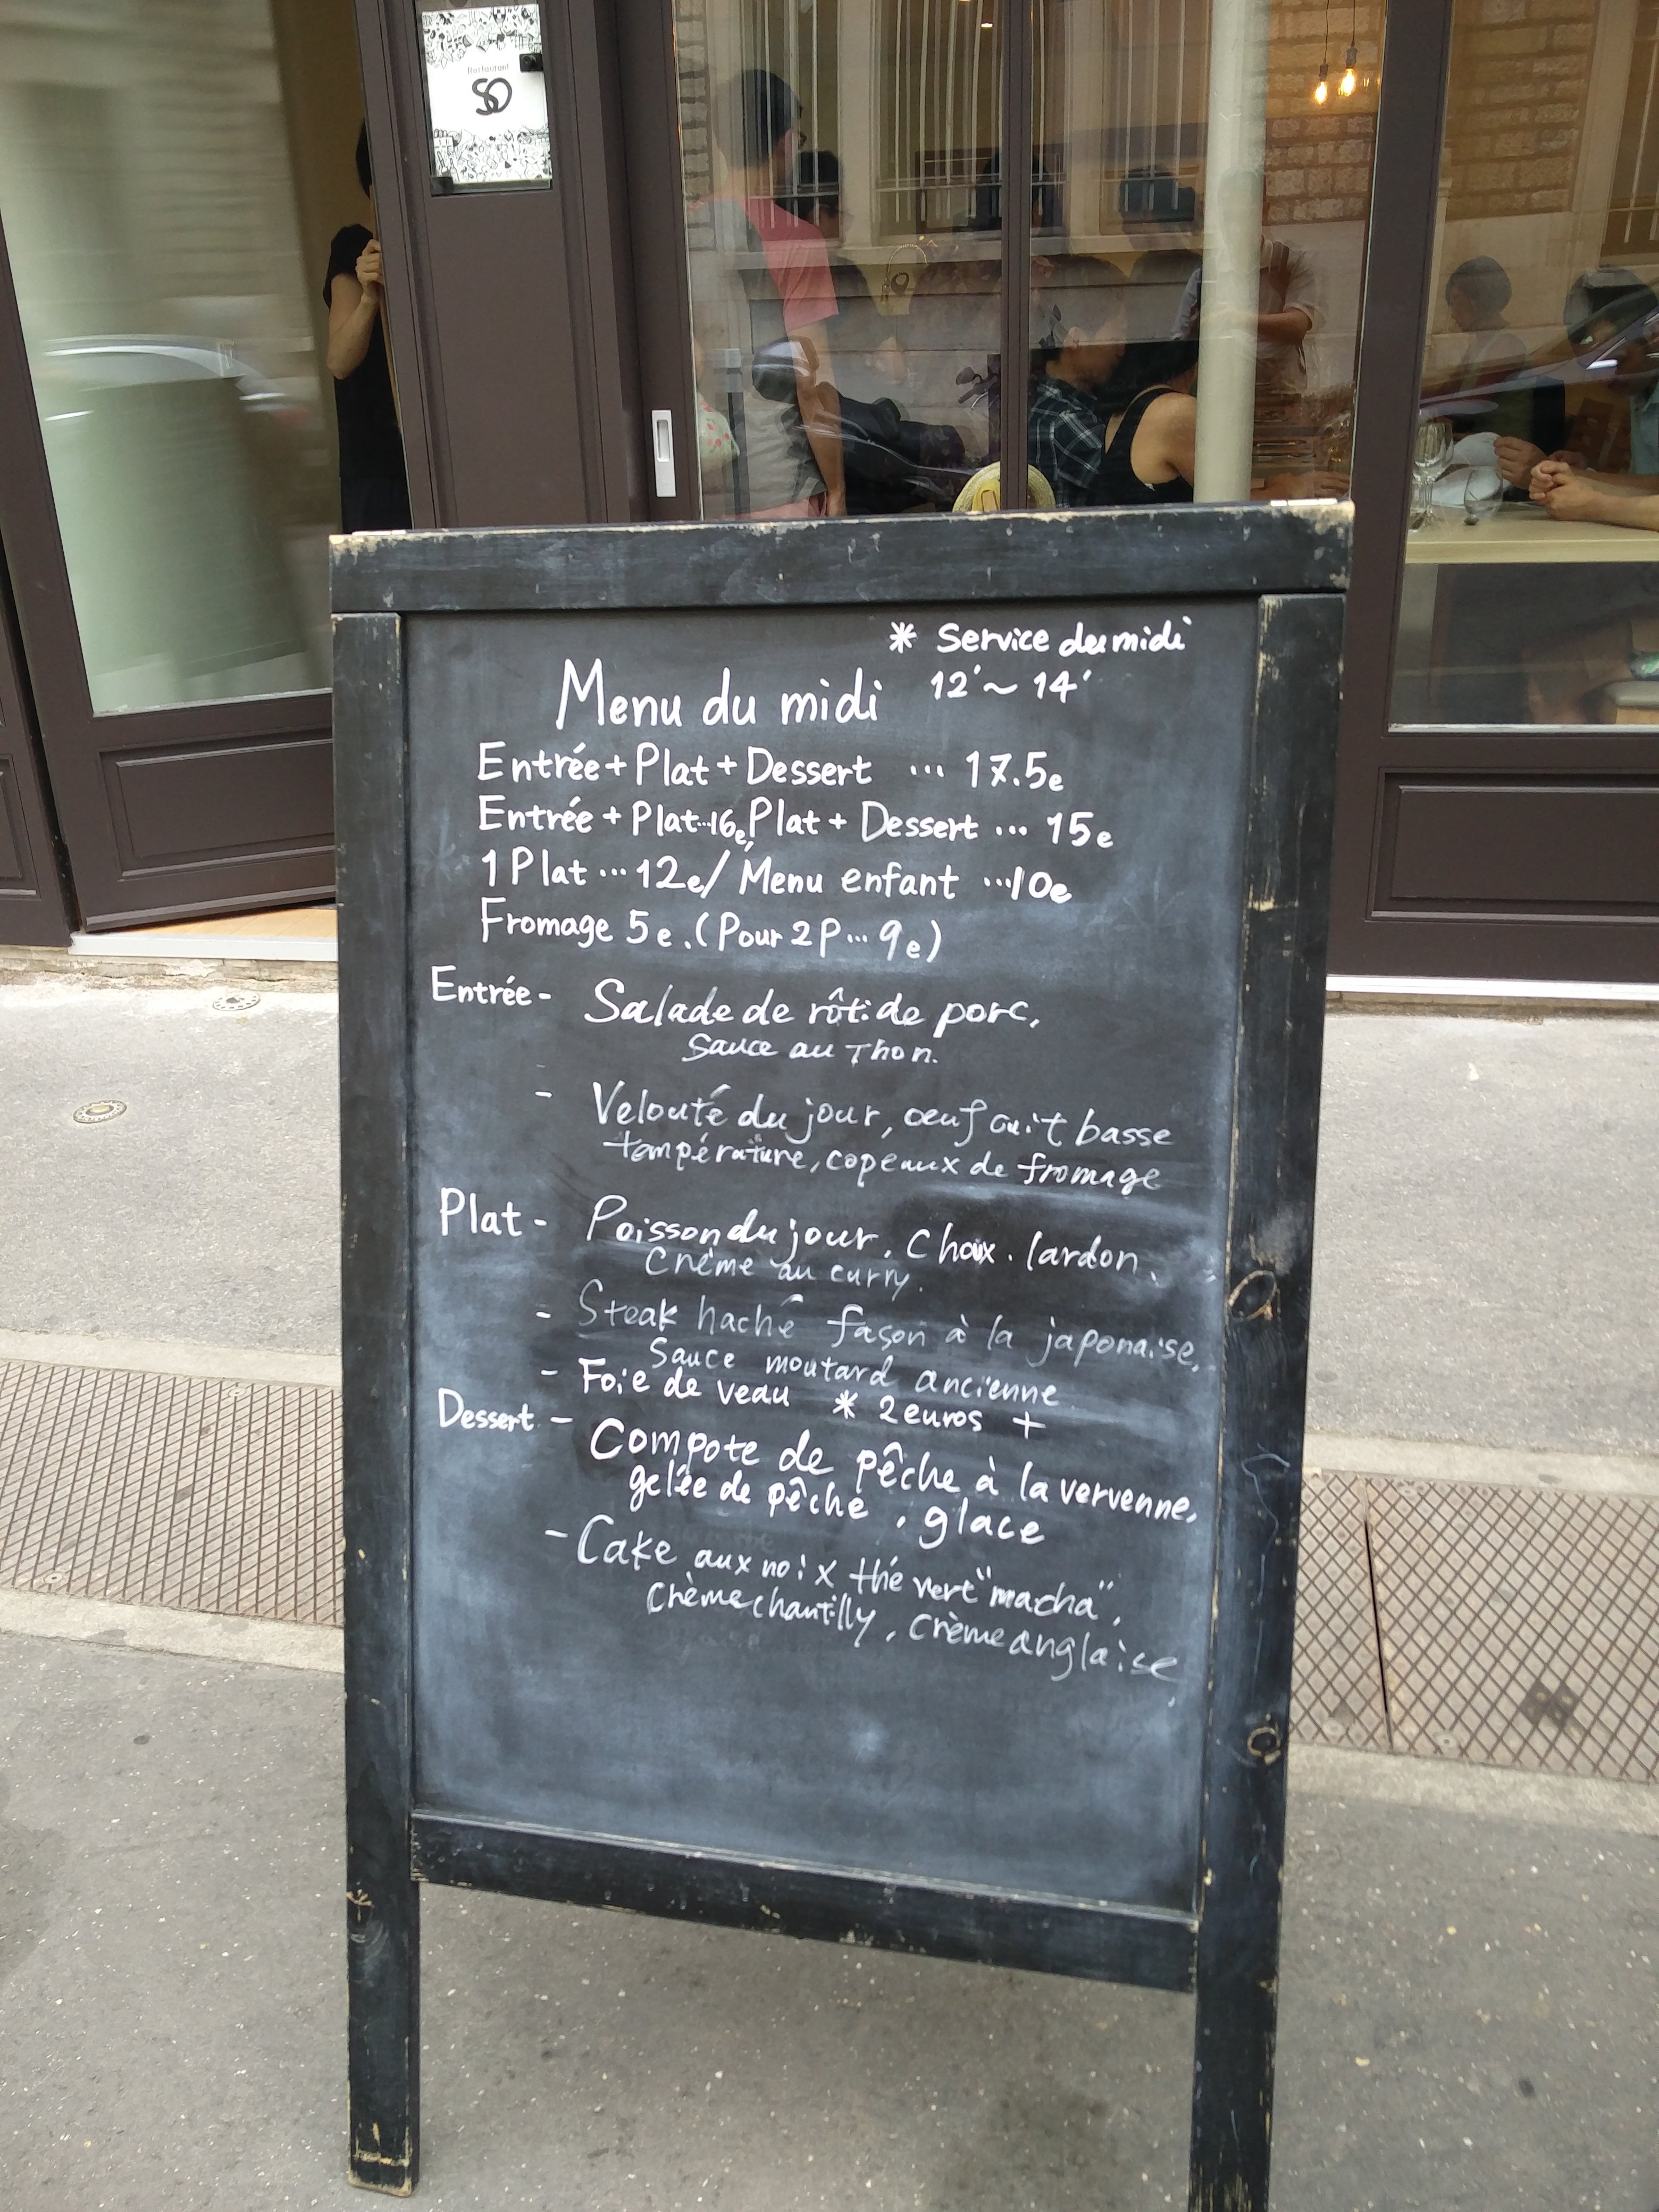 Restaurant
SO
* Service du midi
12'~14'
Menu du midi
Entrée + Plat + Dessert ... 17.5e
Entrée + Plat...16e, Plat + Dessert ... 15e
1 Plat ... 12e / Menu enfant ...10e
Fromage 5e. (Pour 2P... 9e)
Entrée - Salade de rôti de porc,
Sauce au Thon.
- Velouté du jour, œuf cuit basse
température, copeaux de fromage
Plat - Poisson du jour, Choux. lardon,
Crème au curry.
- Steak haché façon à la japonaise,
Sauce moutard ancienne
- Foie de veau * 2 euros +
Dessert - Compote de pêche à la vervenne,
gelée de pêche, glace
- Cake aux noix thé vert "macha",
crème chantilly, crème anglaise